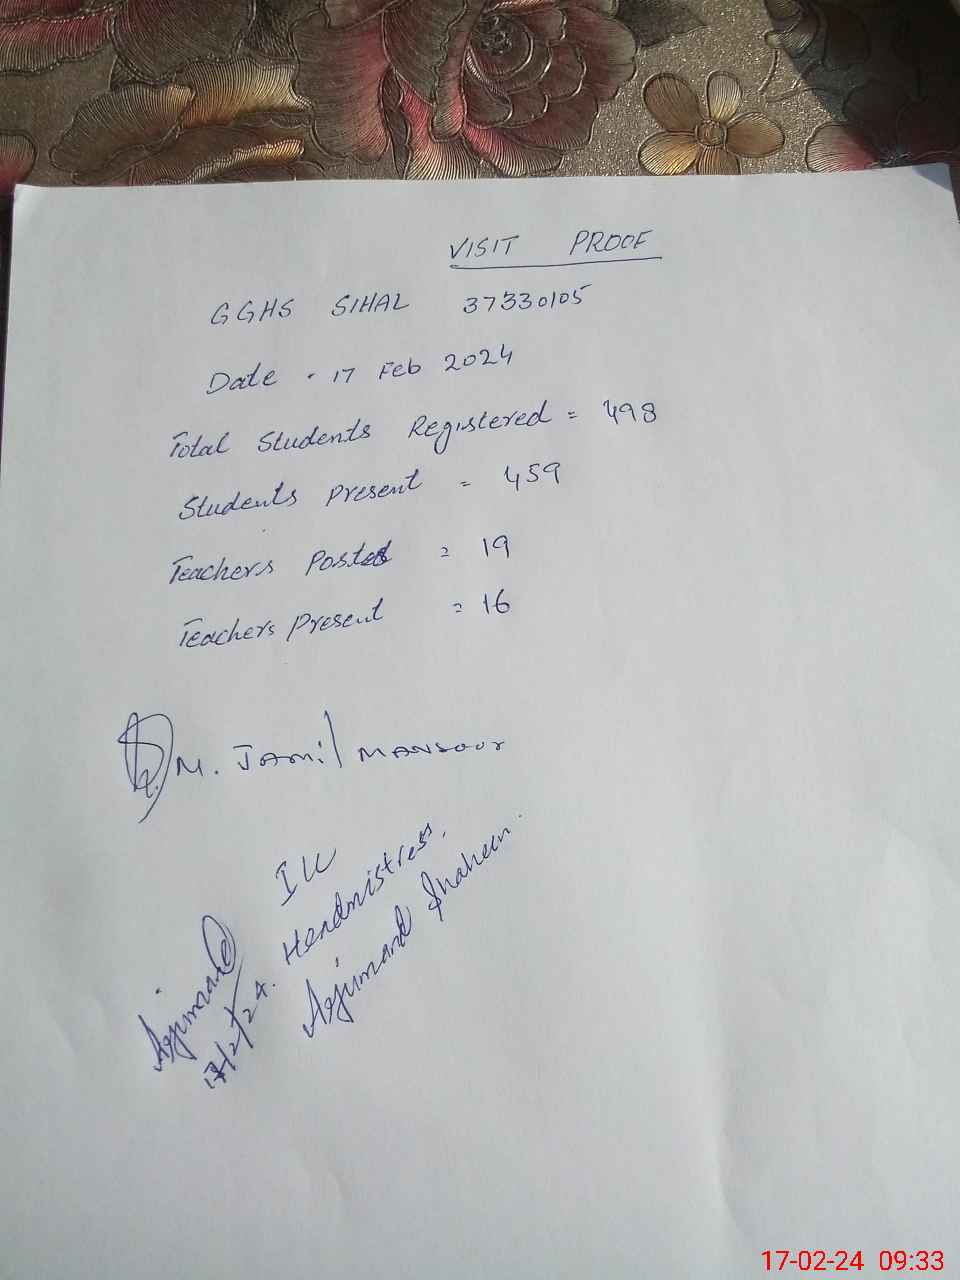 VISIT PROOF
GGHS SIHAL 37330105
Date . 17 Feb 2024
Total Students Registered = 498
Students Present = 459
Teachers Posted = 19
Teachers Present = 16
M. JAMil MANSOOR
Headmistress.
Arjumand Shaheen.
Arjumand
17/2/24.
17-02-24 09:33